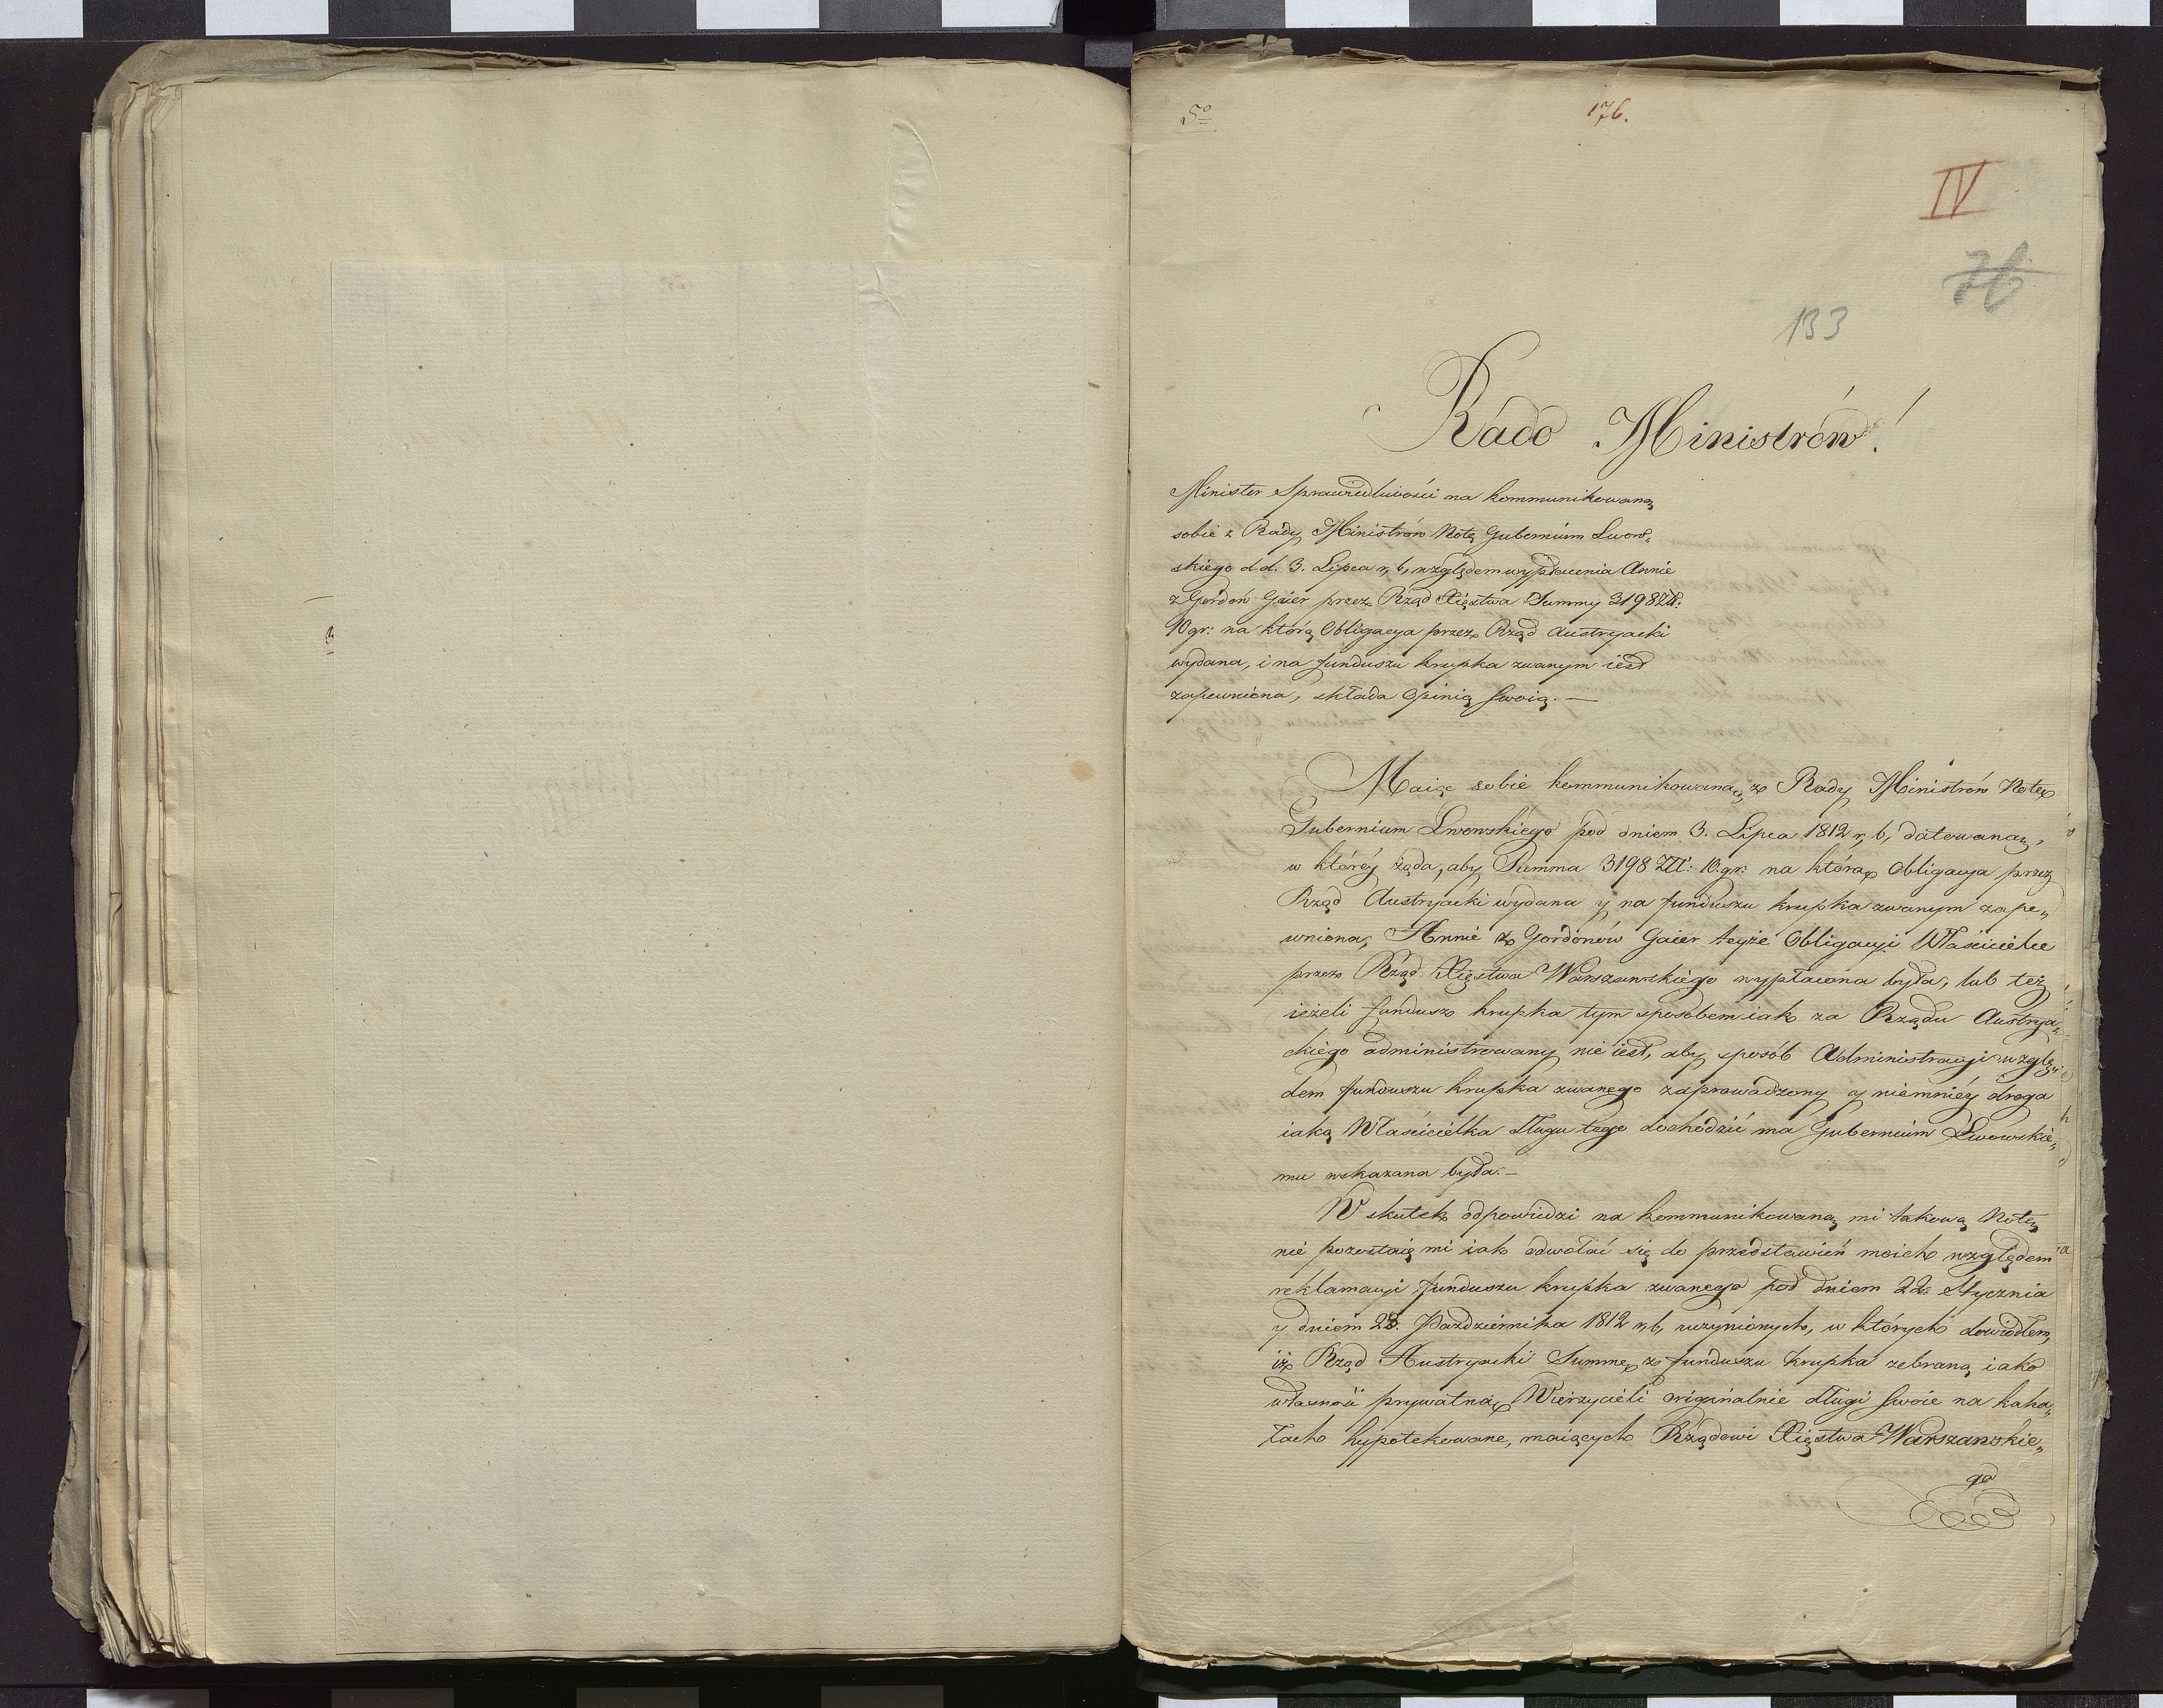 5o
176.
IV
76
133
Rado Ministrów!
Minister Sprawiedliwości na kommunikowaną
sobie z Rady Ministrów Notę Gubernium Lwow„
skiego d.d. 3. Lipca r, b, względem wypłacenia Annie
z Gordon Gaier przez Rząd Xięstwa Summy 3198 Zł:
10 gr: na którą Obligacya przez Rząd Austryacki
wydana, i na funduszu krupka zwanym iest
zapewniona, składa Opinią swoią. —
Maiąc sobie kommunikowaną z Rady Ministrów Notę
Gubernium Lwowskiego pod dniem 3. Lipca 1812 r, b, datowaną,
w któréy żąda, aby Summa 3198 Zll: 10. gr: na którą Obligacya przez
Rząd Austryacki wydana y na funduszu krupka zwanym zape„
wniona, Annie z Gordonów Gaier teyże Obligacyi Właścicielce
przez Rząd Xięstwa Warszawskiego wypłacona była, lub też
ieżeli fundusz krupka tym sposobem iak za Rządu Austrya„
ckiego administrowany nie iest, aby sposób Administracyi wzglę„
dem funduszu krupka zwanego zaprowadzony y niemniéy droga
iaką Właścicielka długu tego dochodzić ma Gubernium Lwowskie„
mu wskazana była. —
W skutek odpowiedzi na kommunikowaną mi takową Notę
nie pozostaię mi iak odwołać się do przedstawień moich względem
reklamacyi funduszu krupka zwanego pod dniem 22. Stycznia
y dniem 28. Października 1812 r, b, uczynionych, w których dowiodłem,
iż Rząd Austryacki Summę z funduszu krupka zebraną iako
własność prywatną Wierzycieli originalnie długi swoie na kaha„
łach hypotekowane, maiących Rządowi Xięstwa Warszawskie„
go